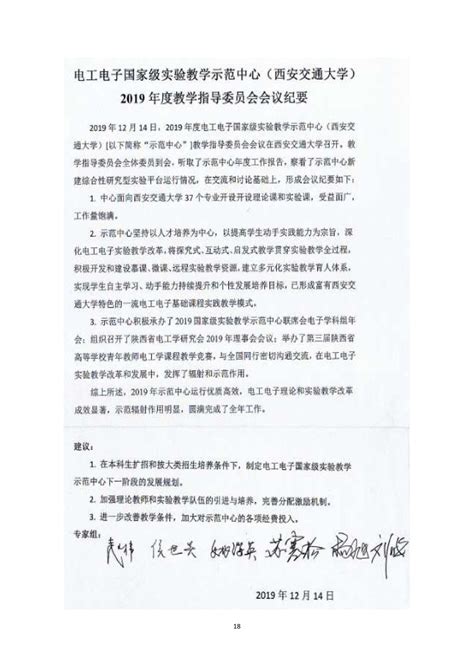 电工电子国家级实验教学示范中心（西安交通大学）
2019 年度教学指导委员会会议纪要
2019 年 12 月 14 日，2019 年度电工电子国家级实验教学示范中心（西安交
通大学）[以下简称“示范中心”]教学指导委员会会议在西安交通大学召开。教
学指导委员会全体委员到会，听取了示范中心年度工作报告，察看了示范中心新
建综合性研究型实验平台运行情况，在交流和讨论基础上，形成会议纪要如下：
1. 中心面向西安交通大学 37 个专业开设开设理论课和实验课，受益面广，
工作量饱满。
2. 示范中心坚持以人才培养为中心，以提高学生动手实践能力为宗旨，深
化电工电子实验教学改革，将探究式、互动式、启发式教学贯穿实验教学全过程，
积极开发和建设慕课、微课、远程实验教学资源，建立多元化实验教学育人体系，
实现学生自主学习、动手能力持续提升和个性发展培养目标，已形成富有西安交
通大学特色的一流电工电子基础课程实践教学模式。
3. 示范中心积极承办了 2019 国家级实验教学示范中心联席会电子学科组年
会；组织召开了陕西省电工学研究会 2019 年理事会会议；举办了第三届陕西省
高等学校青年教师电工学课程教学竞赛，与全国同行密切沟通交流，在电工电子
实验教学改革和发展中，发挥了辐射和示范作用。
综上所述，2019 年示范中心运行优质高效，电工电子理论和实验教学改革
成效显著，示范辐射作用明显，圆满完成了全年工作。
建议：
1. 在本科生扩招和按大类招生培养条件下，制定电工电子国家级实验教学
示范中心下一阶段的发展规划。
2. 加强理论教师和实验教学队伍的引进与培养，完善分配激励机制。
3. 进一步改善教学条件，加大对示范中心的各项经费投入。
专家组：
2019 年 12 月 14 日
18